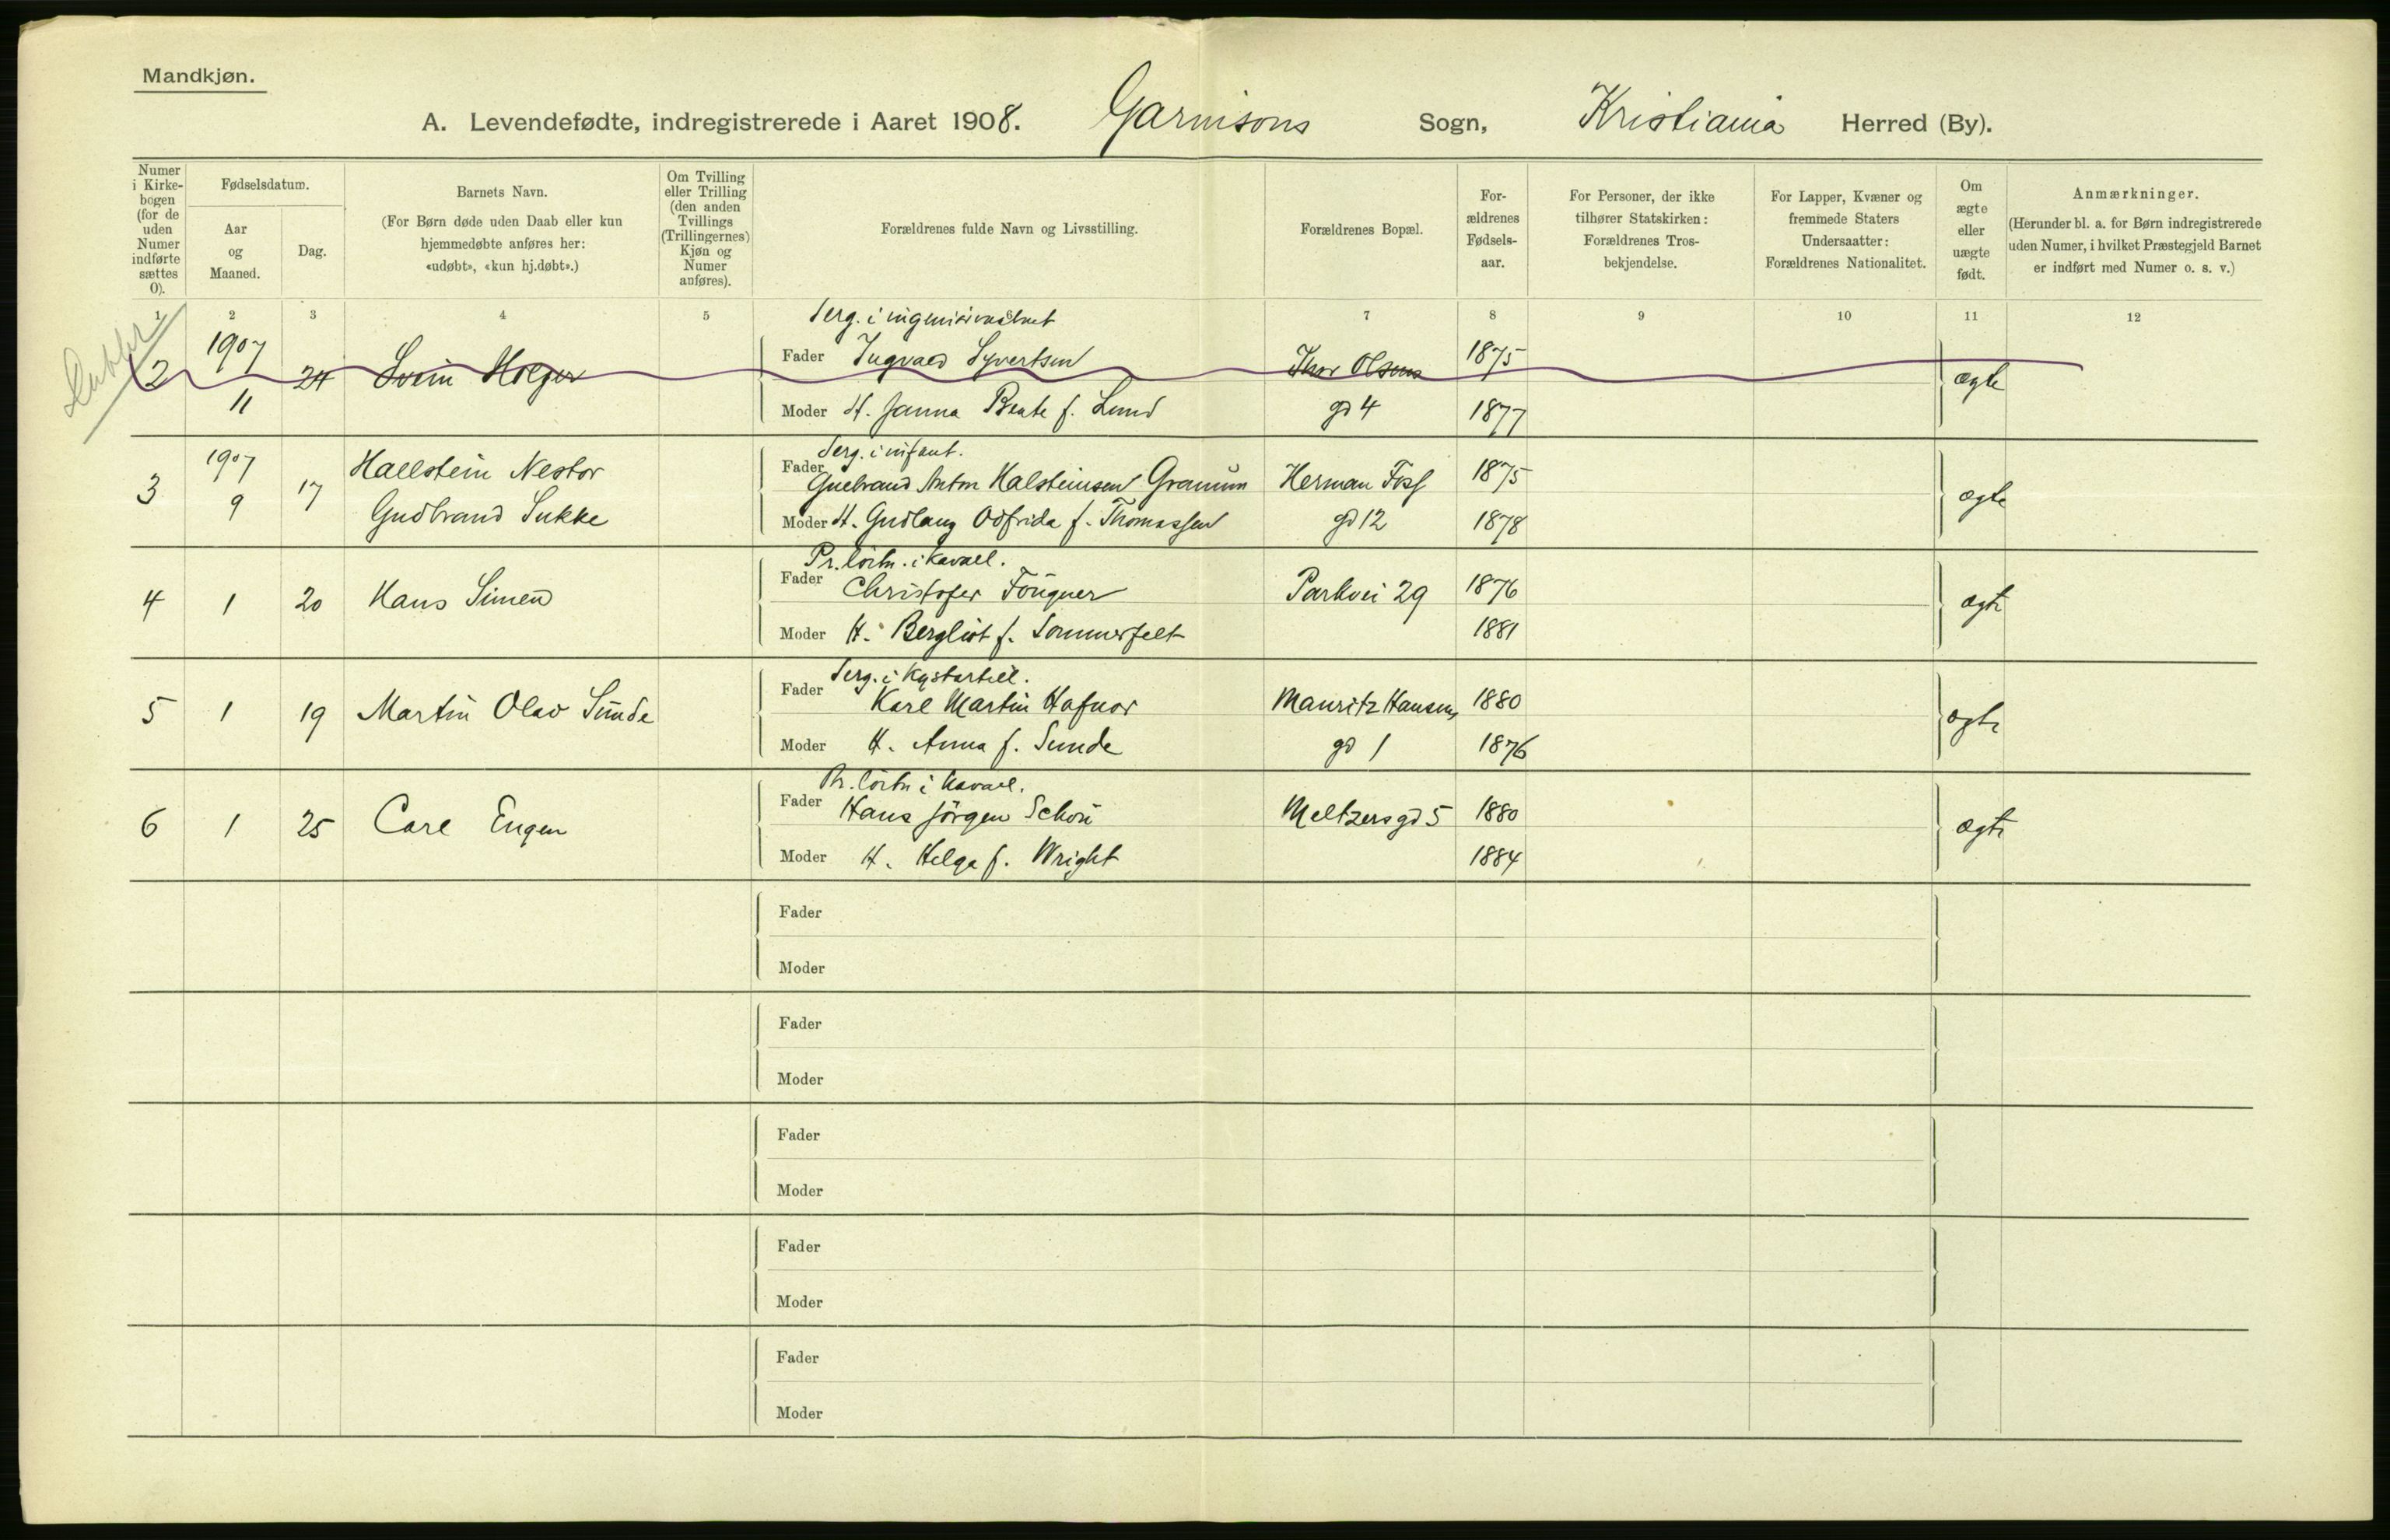 Mandkjøn.
A. Levendefødte, indregistrerede i Aaret 1908. Garnisons Sogn, Kristiania Herred (By).
Numer i Kirke-bogen (for de uden Numer indførte sættes 0).
Fødselsdatum.
Aar og Maaned.
Dag.
Barnets Navn.
(For Børn døde uden Daab eller kun
hjemmedøbte anføres her:
«udøbt», «kun hj.døbt».)
Om Tvilling
eller Trilling
(den anden
Tvillings
(Trillingernes)
Kjøn og
Numer
anføres).
Forældrenes fulde Navn og Livsstilling.
Forældrenes Bopæl.
For-
ældrenes
Fødsels-
aar.
For Personer, der ikke
tilhører Statskirken:
Forældrenes Tros-
bekjendelse.
For Lapper, Kvæner og
fremmede Staters
Undersaatter:
Forældrenes Nationalitet.
Om
ægte
eller
uægte
født.
Anmærkninger.
(Herunder bl. a. for Børn indregistrerede
uden Numer, i hvilket Præstegjeld Barnet
er indført med Numer o. s. v.)
1 2 3 4 5 6 7 8 9 10 11 12
Serg. i
2 1907 24 Svein Holger Fader Ingvald Syvertsen Thor Olsens 1875 ægte
11 Moder H. Janna Beate f. Lund gd 4 1877
Serg. i infant.
3 1907 17 Hallstein Nestor Fader Gudbrand Anton Halsteinsen Granum Herman Foss 1875 ægte
9 Gudbrand Sukke Moder H. Gudlaug Odfrida f. Thomassen gd 12 1878
Pr. løitn. i kavall.
4 1 20 Hans Simen Fader Christofer Fougner Parkvei 29 1876 ægte
Moder H. Bergliot f. Sommerfelt 1881
Serg. i Kystartill.
5 1 19 Martin Olav Sunde Fader Karl Martin Hafnor Mauritz Hansens 1880 ægte
Moder H. Anna f. Sunde gd 1 1876
Pr. løitn i kavall.
6 1 25 Carl Eugen Fader Hans Jörgen Schou Meltzersgd 5 1880 ægte
Moder H. Helga f. Wright 1884
Fader
Moder
Fader
Moder
Fader
Moder
Fader
Moder
Fader
Moder